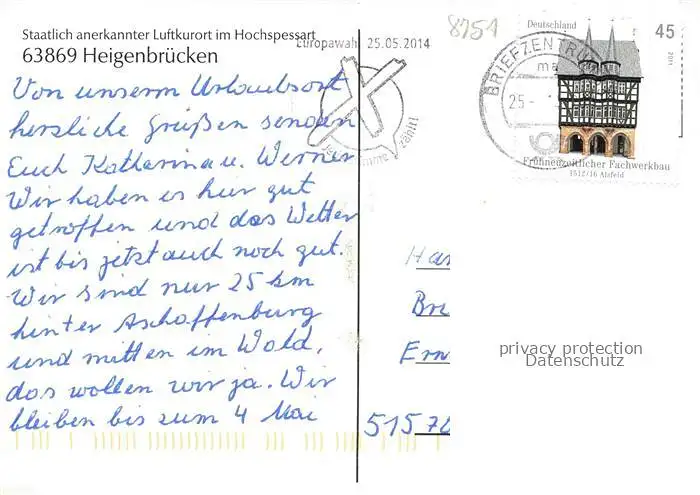 Staatlich anerkannter Luftkurort im Hochspessart
63869 Heigenbrücken
Europawahl 25.05.2014
8751
Deutschland 45
BRIEFZENTRUM
ma
25
Frühneuzeitlicher Fachwerkbau
1512/16 Alsfeld
Von unserm Urlaubsort
herzliche Grüßen senden
Euch Katharina u. Werner
Wir haben es hier gut
getroffen und das Wetter
ist bis jetzt auch noch gut.
Wir sind nur 25 km
hinter Aschaffenburg
und mitten im Wald,
das wollen wir ja. Wir
bleiben bis zum 4 Mai
Ha
Br
Ern
51570
privacy protection
Datenschutz